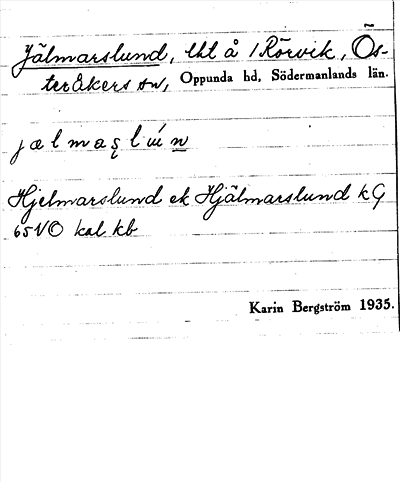 Jälmarslund, lht å 1 Rörvik, Ös-
teråkers sn, Oppunda hd, Södermanlands län.
Hjelmarslund ek Hjälmarslund kG
65 NO kal kb
Karin Bergström 1935.